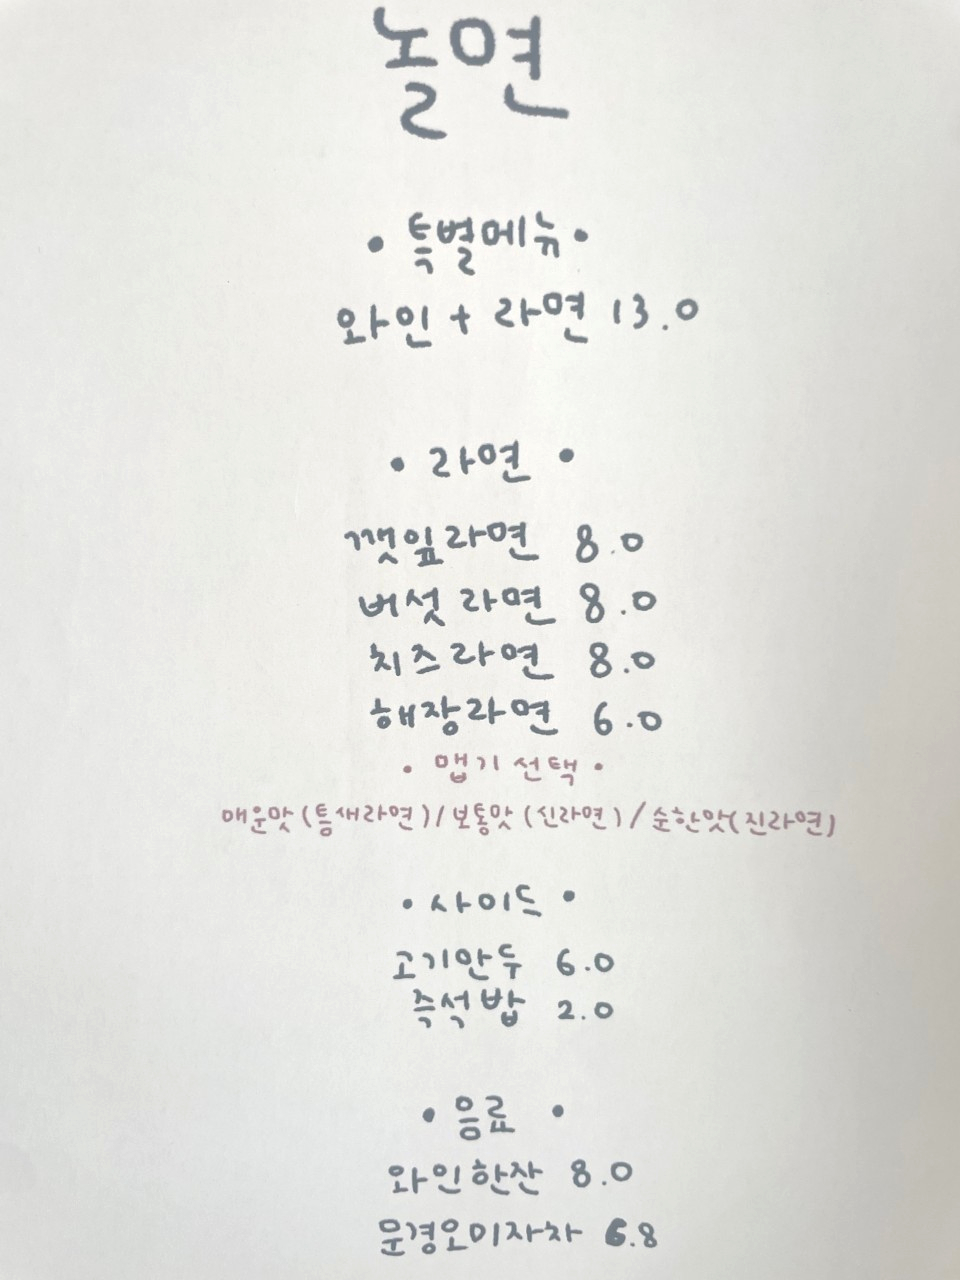 놀면
• 특별메뉴 •
와인 + 라면 13.0
• 라면 •
깻잎라면 8.0
버섯라면 8.0
치즈라면 8.0
해장라면 6.0
• 맵기 선택 •
매운맛 (틈새라면) / 보통맛 (신라면) / 순한맛 (진라면)
• 사이드 •
고기만두 6.0
즉석밥 2.0
• 음료 •
와인한잔 8.0
문경오미자차 6.8